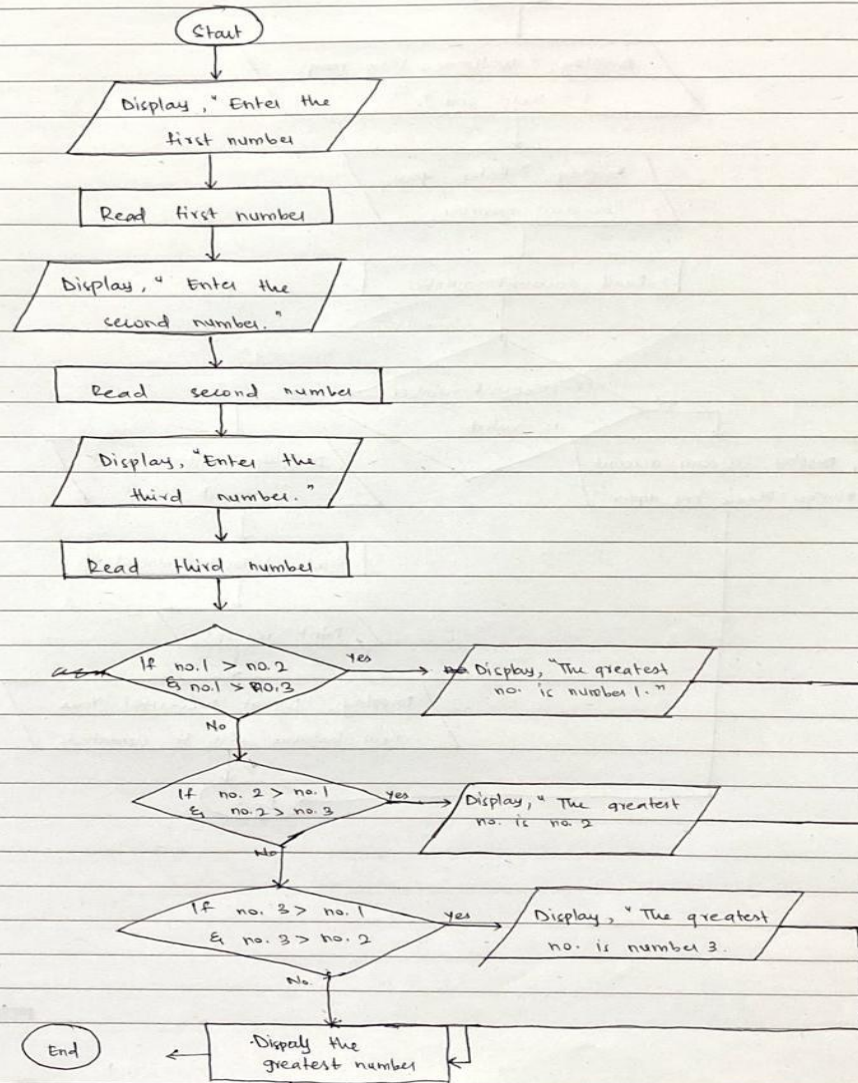 Start
Display, "Enter the
first number
Read first number
Display, " Enter the
second number."
Read second number
Display, "Enter the
third number."
Read third number
If no.1 > no.2
& no.1 > no.3
Yes
Display, "The greatest
no. is number 1."
No
If no. 2 > no. 1
& no.2 > no.3
Yes
Display, " The greatest
no. is no. 2
No
If no. 3 > no. 1
& no. 3 > no. 2
Yes
Display, "The greatest
no. is number 3.
No.
Dispaly the
greatest number
End